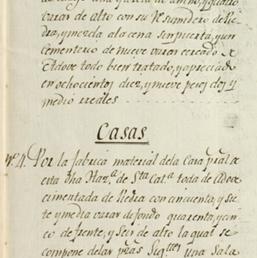 de largo una quarta de ancho, y quatro
varas de alto con su Resumidero de Pie
dra, y mezcla alacena sin puerta, y un
cementerio de nueve varas cercado de
Adove todo bien tratado, y apreciado
en ochocientos diez, y nueve pesos dos y
medio reales
Casas
Nº 4. Por la fabrica material dela Casa pral. de
esta dha Hazda. de Sta. Cata. toda de Adove
cimentada de Piedra con cincuenta, y sie
te y media varas de fondo quarenta, y cin
co de frente, y seis de alto la qual se
compone delas piezas Sigtes. Una Sala